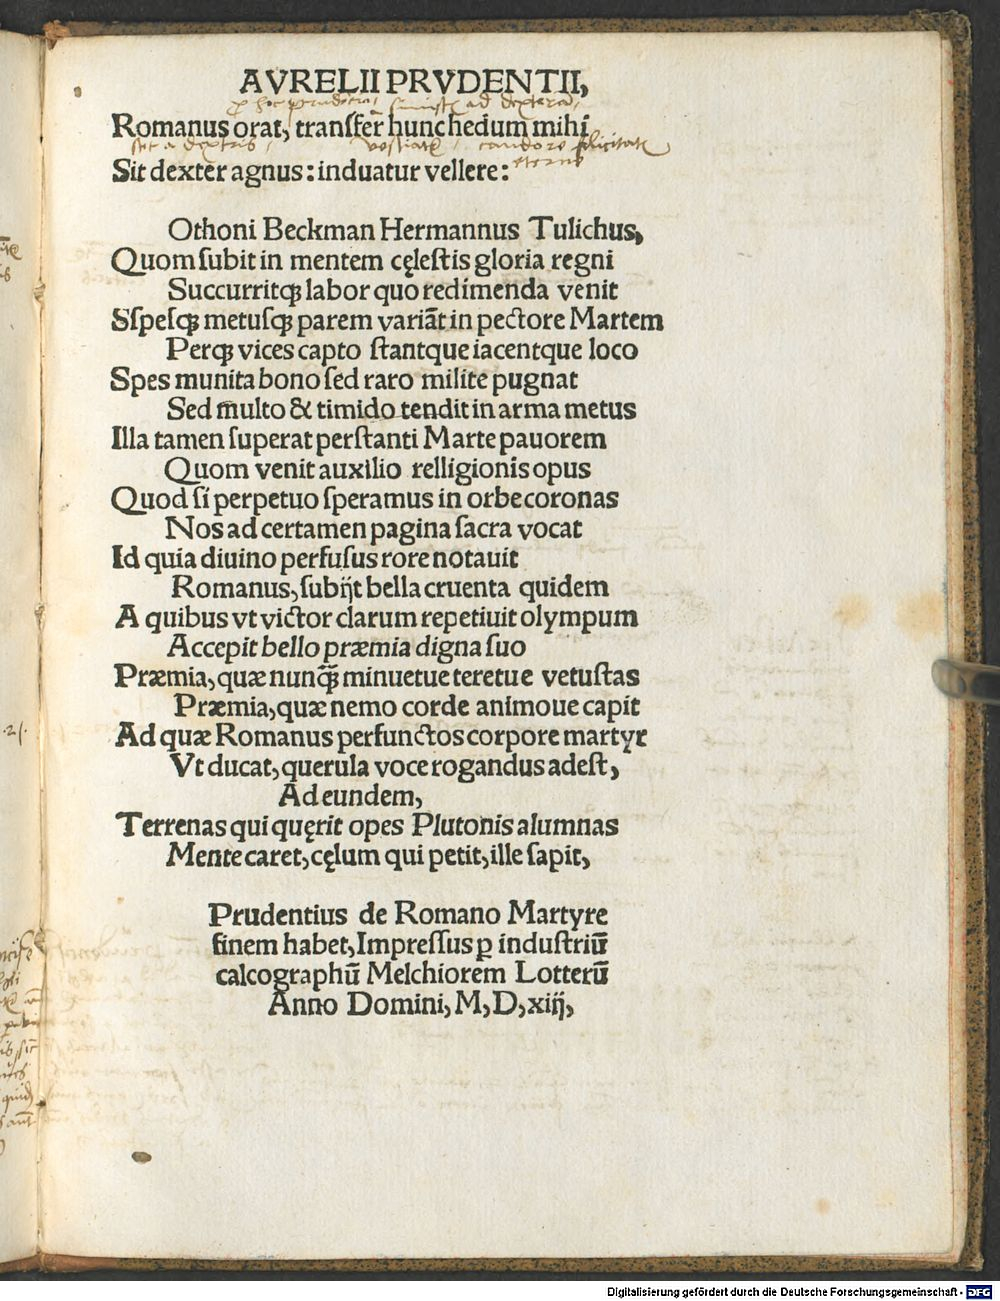 AVRELII PRVDENTII,
Romanus orat, transfer hunc hedum mihi
sit a dextris
Sit dexter agnus: induatur vellere:
Othoni Beckman Hermannus Tulichus,
Quom ſubit in mentem cęleſtis gloria regni
Succurritqꝫ labor quo redimenda venit
Sſpeſqꝫ metuſqꝫ parem variāt in pectore Martem
Perqꝫ vices capto ſtantque iacentque loco
Spes munita bono ſed raro milite pugnat
Sed multo & timido tendit in arma metus
Illa tamen ſuperat perſtanti Marte pauorem
Quom venit auxilio relligionis opus
Quod ſi perpetuo ſperamus in orbe coronas
Nos ad certamen pagina ſacra vocat
Id quia diuino perfuſus rore notauit
Romanus, ſubijt bella cruenta quidem
A quibus vt victor clarum repetiuit olympum
Accepit bello præmia digna ſuo
Præmia, quæ nunqꝫ̃ minuetue teretue vetuſtas
Præmia, quæ nemo corde animoue capit
Ad quæ Romanus perfunctos corpore martyr
Vt ducat, querula voce rogandus adeſt,
Ad eundem,
Terrenas qui quęrit opes Plutonis alumnas
Mente caret, cęlum qui petit, ille ſapit,
Prudentius de Romano Martyre
finem habet, Impreſſus ꝑ induſtriū
calcographū Melchiorem Lotterū
Anno Domini, M, D, xiij,
Digitalisierung gefördert durch die Deutsche Forschungsgemeinschaft - DFG